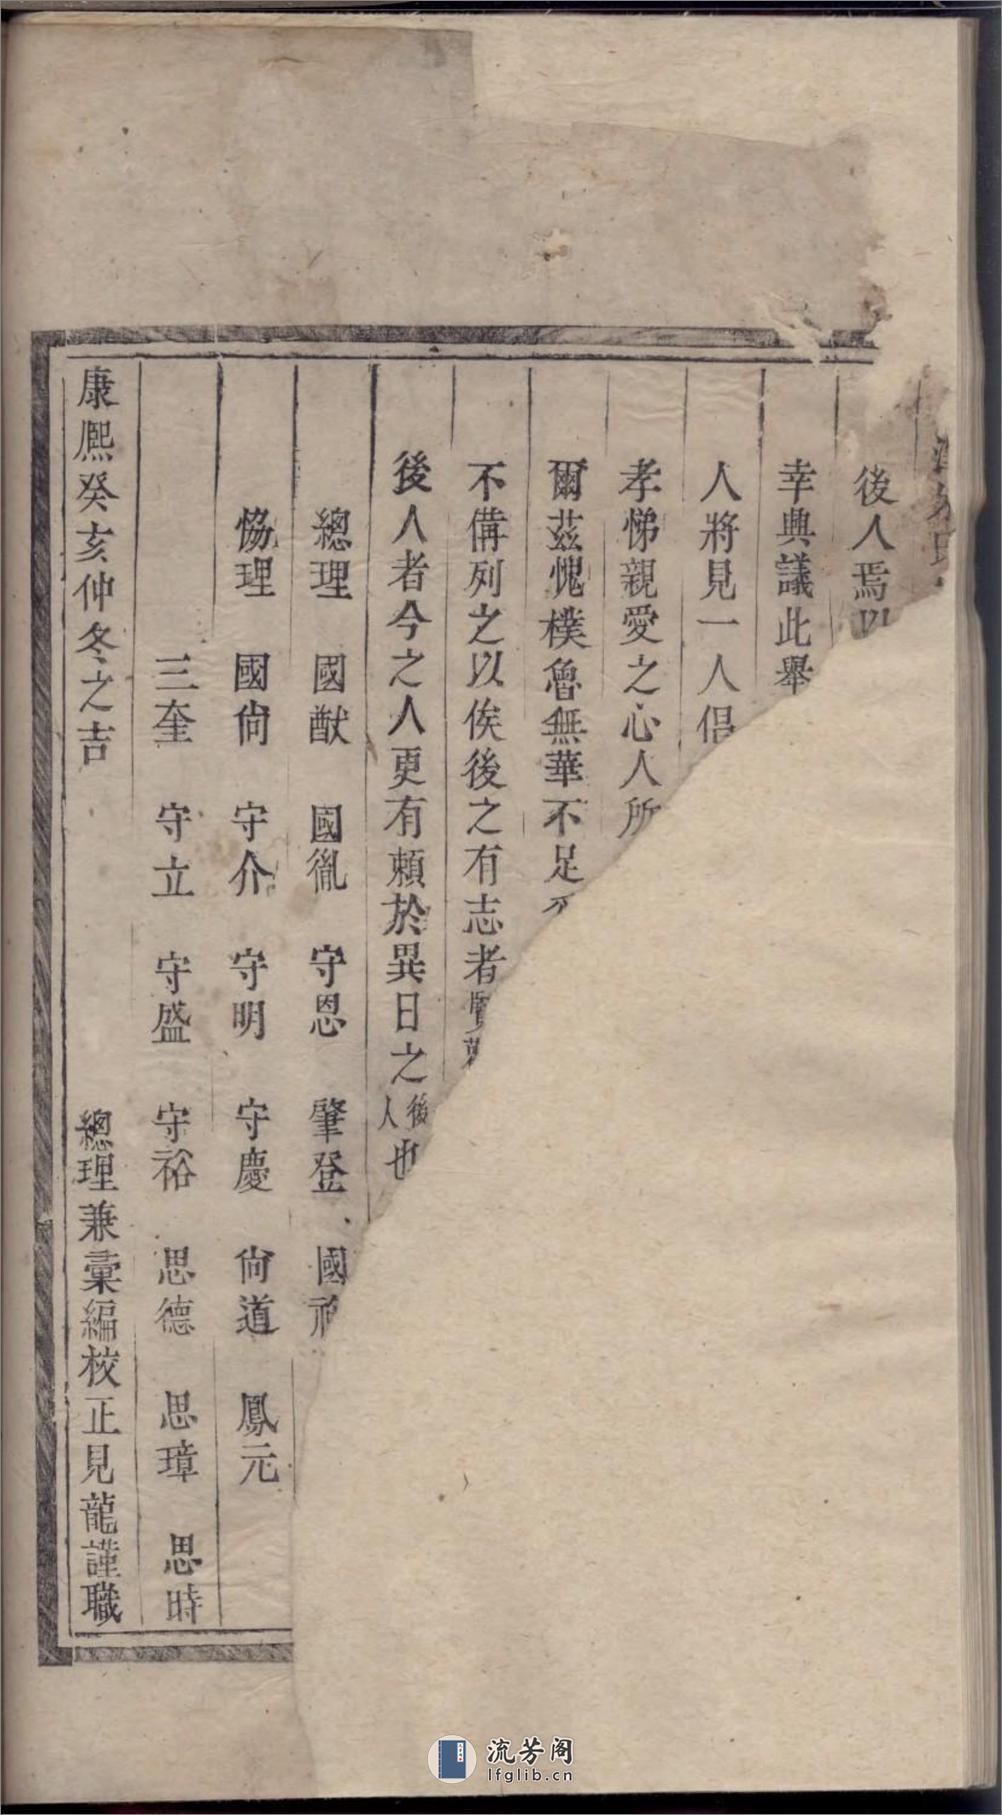 後人焉以
幸興議此舉
人將見一人倡
孝悌親愛之心人所
爾茲愧樸魯無華不足
不備列之以俟後之有志者賢
後人者今之人更有賴於異日之後人也
總理 國猷 國胤 守恩 肇登 國
恊理 國尙 守介 守明 守慶 尙道 鳳元
三奎 守立 守盛 守裕 思德 思璋 思時
康熙癸亥仲冬之吉 總理兼彙編校正見龍謹職
流芳阁
lfglib.cn